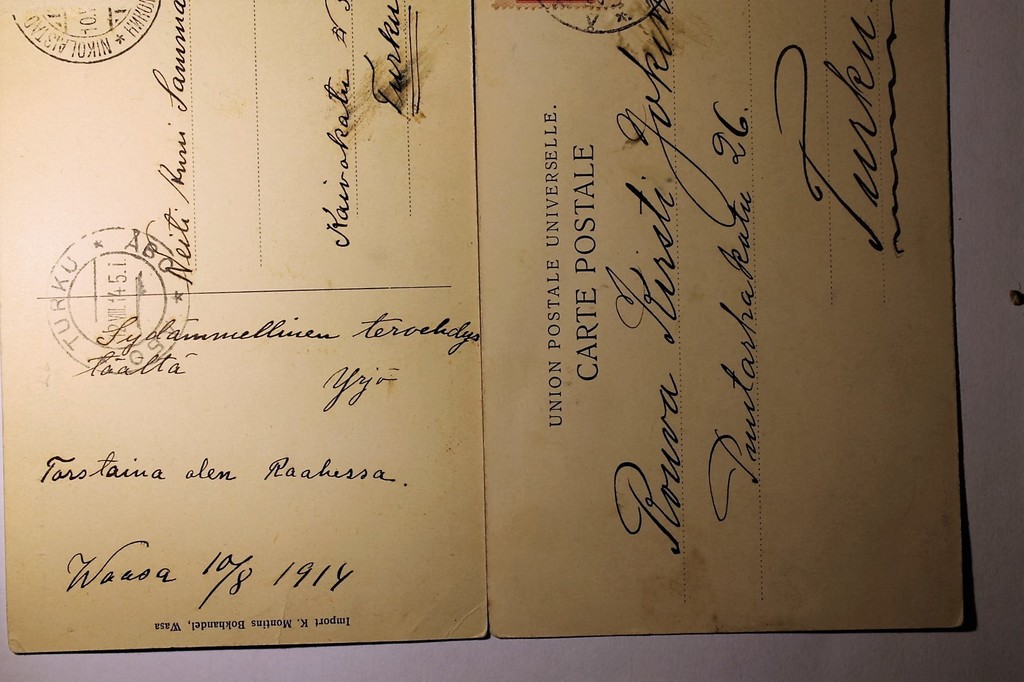 NIKOLAISTAD
Neiti Anni
Kaivokatu
Turku
TURKU ÅBO
VIII.14.5.i
Sydämmellinen tervehdys
täältä
Yrjö
Torstaina olen Raahessa.
Waasa 10/8 1914
Import K. Montins Bokhandel, Wasa
UNION POSTALE UNIVERSELLE.
CARTE POSTALE
Rouva Kirsti
Puutarhakatu 26.
Turku